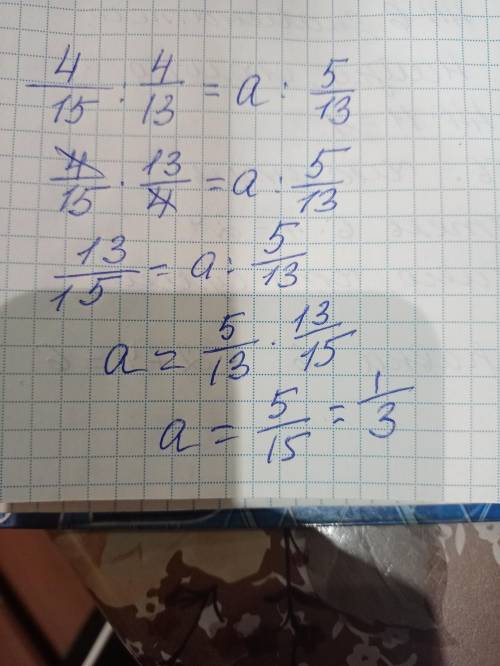 4/15 : 4/13 = a : 5/13
4/15 · 13/4 = a : 5/13
13/15 = a : 5/13
a = 5/13 · 13/15
a = 5/15 = 1/3